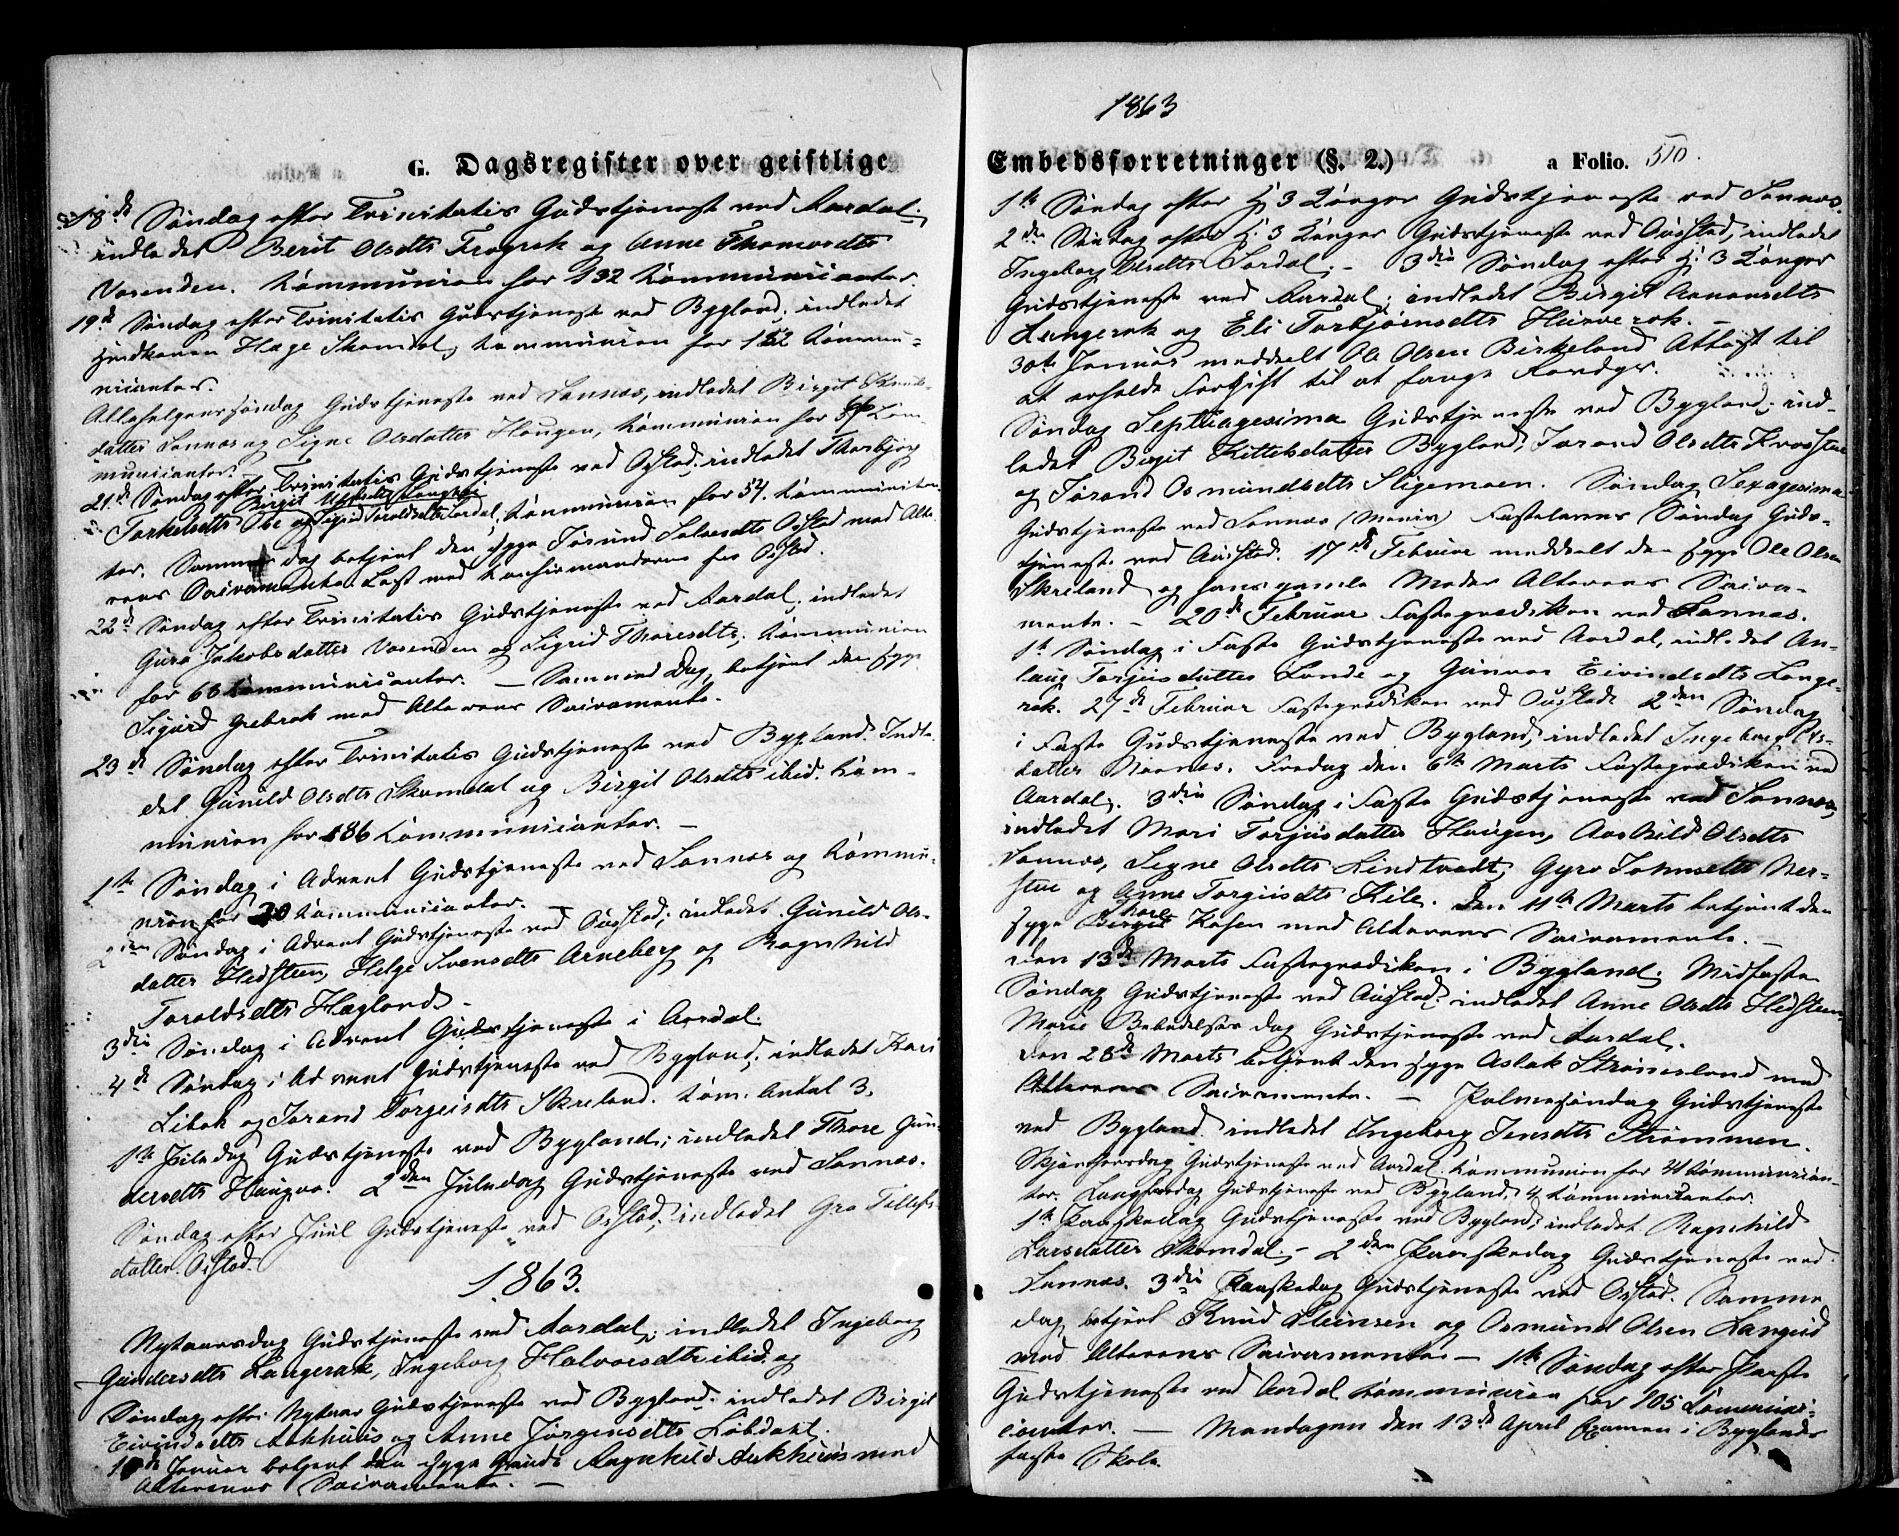 G. Dagsregister over geistlige
18de Søndag efter Trinitatis Gudstjeneste ved Aardal;
indledet Berit Olsdtr Frøyrak og Anne Thomasdtr
Vasenden. Kommunion for 132 Kommunicanter.
19de Søndag efter Trinitatis Gudstjeneste ved Bygland; indledet
Huuskonen Hæge Skomdal, Kommunion for 152 Kommu-
nicanter.
Allehelgenssøndag Gudstjeneste ved Sannes, indledet Birgit Knuds-
datter Sannes og Signe Olsdatter Haugen, Kommunion for Kom-
municanter.
21de Søndag efter Trinitatis Gudstjeneste ved Østad; indledet Thorbjør
Birgit
Torkelsdtr Ose og Sigrid Taraldsdtr Jordal, Kommunion for 54 Kommunican-
ter. Samme Dag betjent den syge Jorund Salvesdtr Østad med Alte-
rens Sacramente Læst med Konfirmanderne fra Østad.
22de Søndag efter Trinitatis Gudstjeneste ved Aardal; indledet
Guro Jakobsdatter Vasenden og Sigrid Tharesdtr; Kommunion
for 68 Kommunicanter. — Samme Dag, betjent den syge
Sigurd Grebrok med Alterens Sacramente.
23de Søndag efter Trinitatis Gudstjeneste ved Bygland. Indle-
det Gunild Olsdtr Skomdal og Birgit Olsdtr ibid. Kom-
munion for 186 Kommunicanter. —
1ste Søndag i Advent Gudstjeneste ved Sannes og Kommu-
nion for 20 Kommunicanter. —
2den Søndag i Advent Gudstjeneste ved Austad; indledet Gunild Ols-
datter Hedsteen, Helge Svensdtr Arneberg og Ragnhild
Taraldsdtr Hagland. —
3die Søndag i Advent Gudstjeneste i Aardal.
4de Søndag i Advent Gudstjeneste ved Bygland; indledet Kari
Libok og Jorand Torgeirsdtr Skreland. Kom. Antal 3.
1ste Juledag Gudstjeneste ved Bygland; indledet Thore Gun-
dersdtr Haugaa. 2den Juledag Gudstjeneste ved Sannes.
Søndag efter Juul Gudstjeneste ved Østad; indledet Gro Tellefs-
datter Østad.
1863.
Nytaarsdag Gudstjeneste ved Aardal; indledet Ingeborg
Gundersdtr Langerak, Ingeborg Halvorsdtr ibid. og
Søndag efter Nytaar Gudstjeneste ved Bygland; indledet Birgit
Eivindsdtr Aakhuus og Anne Jørgensdtr Løbdahl.
Januar betjent den syge Ragnhild Aakhuus med
Alterens Sacramente. —
1863
Embedsforretninger (§. 2.) a Folio. 510.
1ste Søndag efter H: 3 Konger Gudstjeneste ved Sannes.
2den Søndag efter H: 3 Konger Gudstjeneste ved Austad, indledet
Ingeborg Olsdtr Jordal. — 3die Søndag efter H: 3 Konger
Gudstjeneste ved Aardal; indledet Birgit Aanonsdtr
Langerak og Eli Torbjørnsdtr Hurverak. —
30te Januar meddelt Ole Olsen Birkeland Attest til
at erholde Forskift til at fange Rovdyr.
Søndag Septuagesima Gudstjeneste ved Bygland; ind-
ledet Birgit Kittelsdatter Bygland, Jorand Olsdtr
og Jorand Osmundsdtr Stigemoen. Søndag Sexagesima
Gudstjeneste ved Sannes (Messe) Fastelavns Søndag Guds-
tjeneste ved Austad. 17de Februar meddelt den syge Ole Olsen
Skreland og hans gamle Moder Alterens Sacra-
mente. — 20de Februar Fasteprædiken ved Sannes.
1ste Søndag i Faste Gudstjeneste ved Aardal, indledet An-
laug Torjusdatter Lande og Gunvor Eivindsdtr Lange-
rak. 27de Februar Fasteprædiken ved Austad. 2den Søndag
i Faste Gudstjeneste ved Bygland, indledet Ingeborg Ols-
datter Noenes. Fredag den 6te Marts Fasteprædiken ved
Aardal. 3die Søndag i Faste Gudstjeneste ved Sannes,
indledet Mari Torjusdatter Haugen, Aashild Olsdtr
Sannes, Signe Olsdtr Lindtvedt, Gyro Johnsdtr Ner-
stue og Anne Torgiusdtr Kile. Den 11te Marts betjent den
Tore
syge Birgit Kosen med Alterens Sacramente. —
Den 13de Marts Fasteprædiken i Bygland. Midfaste
Søndag Gudstjeneste ved Austad, indledet Anne Olsdtr Hedsteen.
Marie Bebudelses Dag Gudstjeneste ved Aardal.
Den 28de Marts betjent den syge Aslak Strømsland med
Alterens Sacramente. — Palmesøndag Gudstjeneste
ved Bygland indledet Ingeborg Jensdtr Strømmen.
Skjærthorsdag Gudstjeneste ved Aardal. Kommunion for 21 Kommunican-
ter. Langfredag Gudstjeneste ved Bygland. 4 Kommunicanter.
1ste Paaskedag Gudstjeneste ved Bygland; indledet Ragnhild
Larsdatter Skomdal. — 2den Paaskedag Gudstjeneste ved
Sannes. 3die Paaskedag Gudstjeneste ved Østad. Samme
Dag betjent Knud Steensen og Osmund Olsen Langeid
med Alterens Sacramente. — 1ste Søndag efter Paaske
Gudstjeneste ved Aardal Kommunion for 105 Kommuni-
canter. — Mandagen den 13de April Examen i Byglands
faste Skole.